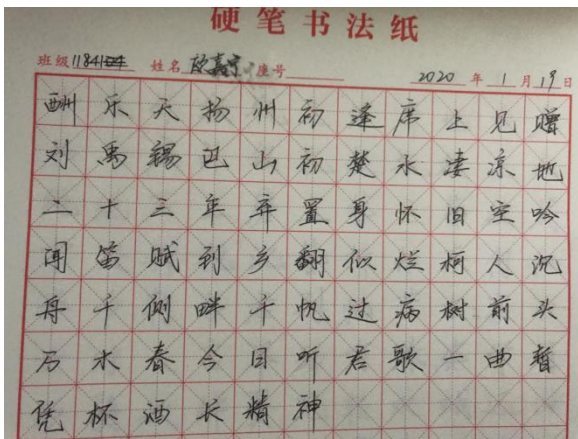 硬笔书法纸
班级 1184 姓名 欧嘉 座号 2020 年 1 月 19 日
酬乐天扬州初逢席上见赠
刘禹锡巴山初楚水凄凉地
二十三年弃置身怀旧空吟
闻笛赋到乡翻似烂柯人沉
舟千侧畔千帆过病树前头
万木春今日听君歌一曲暂
凭杯酒长精神